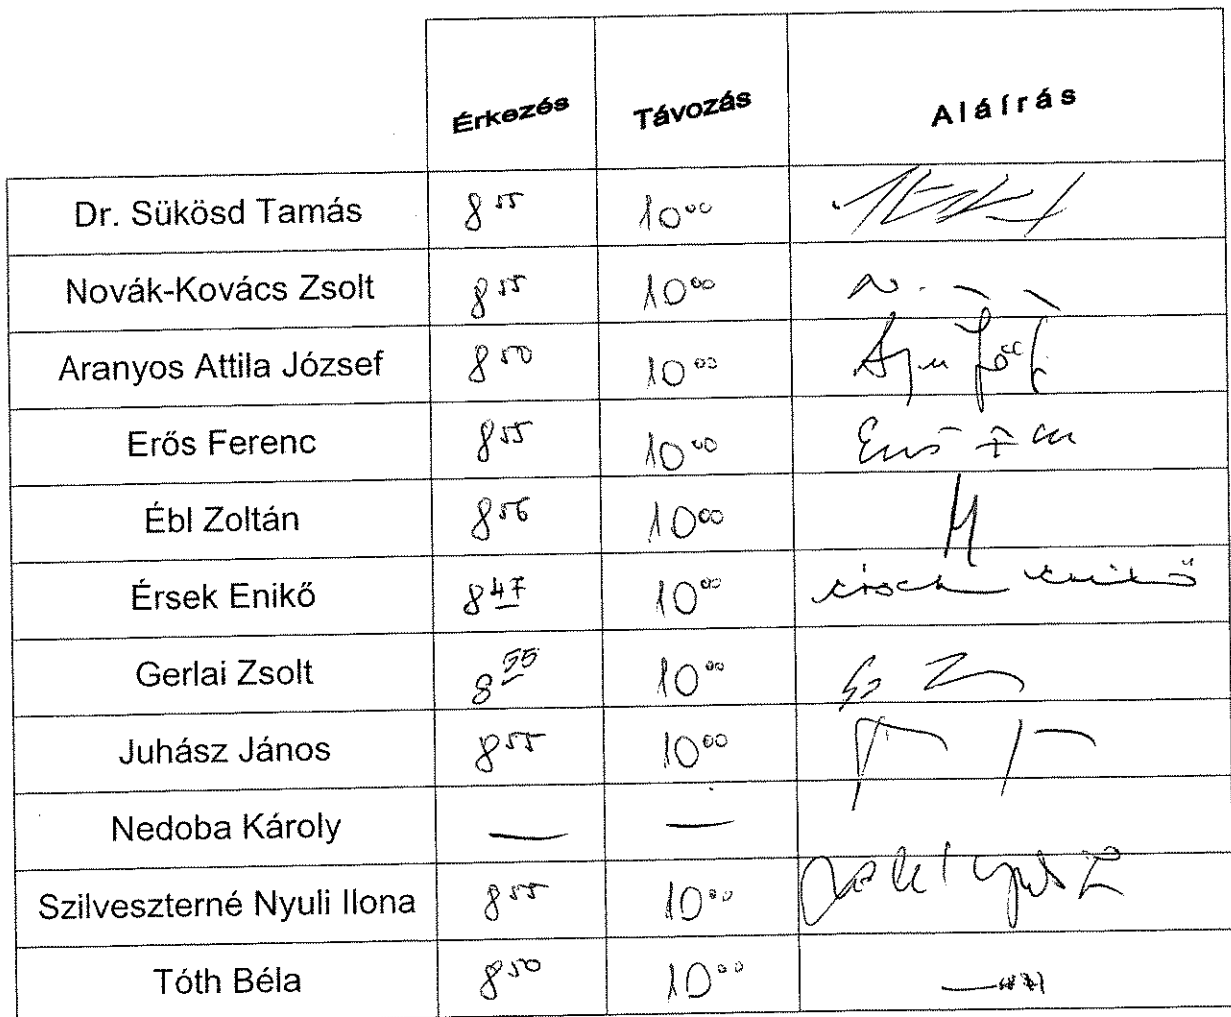 Érkezés Távozás Aláírás
Dr. Sükösd Tamás 8⁵⁵ 10⁰⁰
Novák-Kovács Zsolt 8⁵⁵ 10⁰⁰
Aranyos Attila József 8⁵⁰ 10⁰⁰
Erős Ferenc 8⁵⁵ 10⁰⁰
Ébl Zoltán 8⁵⁶ 10⁰⁰
Érsek Enikő 8⁴⁷ 10⁰⁰ Érsek Enikő
Gerlai Zsolt 8⁵⁵ 10⁰⁰
Juhász János 8⁵⁵ 10⁰⁰
Nedoba Károly — —
Szilveszterné Nyuli Ilona 8⁵⁵ 10⁰⁰
Tóth Béla 8⁵⁰ 10⁰⁰